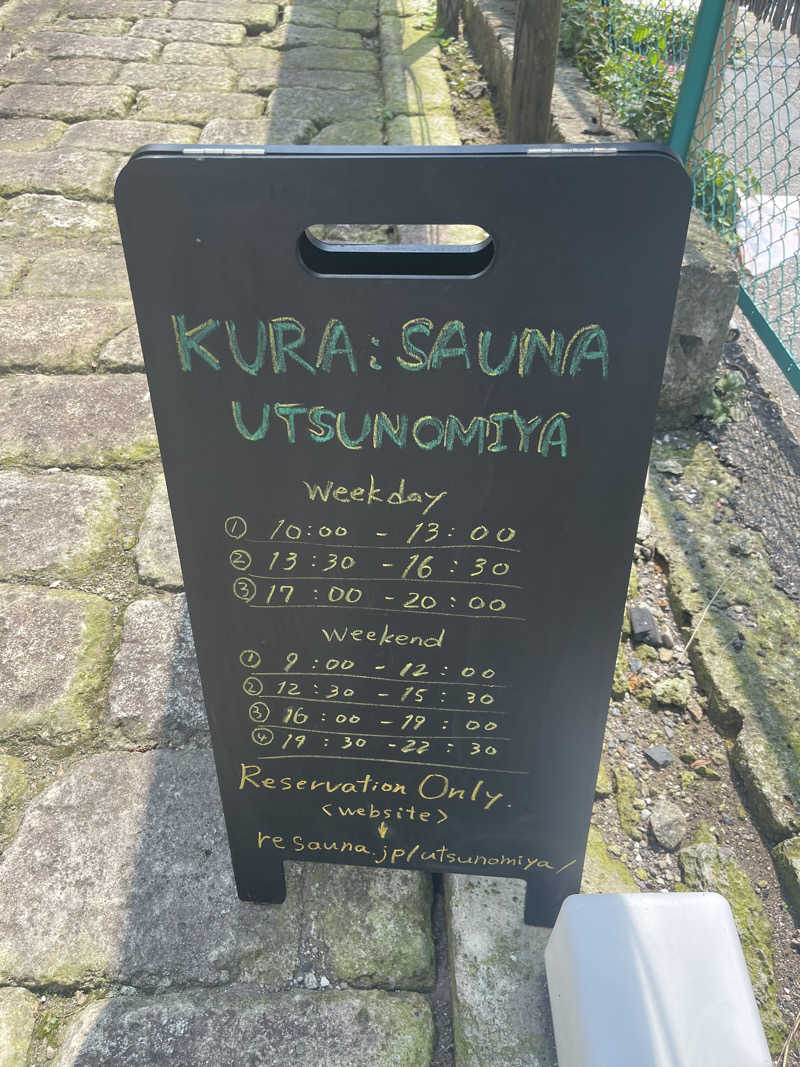 KURA: SAUNA
UTSUNOMIYA
Weekday
① 10:00 - 13:00
② 13:30 - 16:30
③ 17:00 - 20:00
Weekend
① 9:00 - 12:00
② 12:30 - 15:30
③ 16:00 - 19:00
④ 19:30 - 22:30
Reservation Only.
<website>
↓
resauna.jp/utsunomiya/